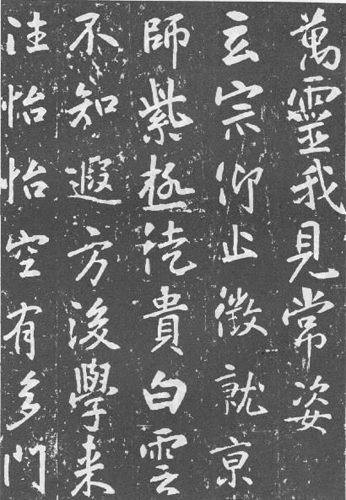 萬靈我見常姿
玄宗仰止徵就京
師紫極詵貴白雲
不知遐方後學来
洼怡怡空有多門